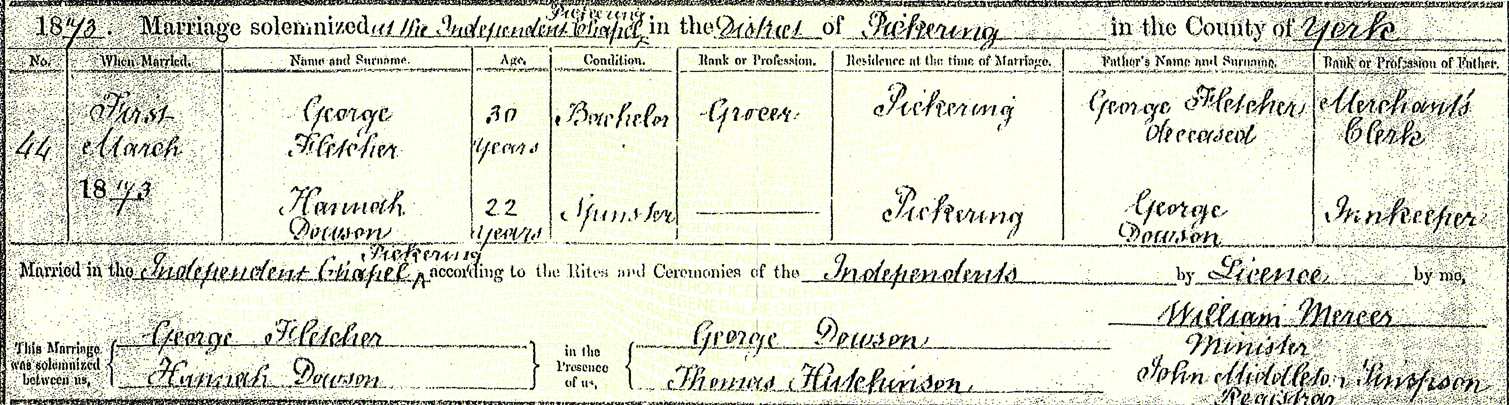 1873. Marriage solemnized at the Independent Chapel, Pickering in the District of Pickering in the County of York
No. When Married. Name and Surname. Age. Condition. Rank or Profession. Residence at the time of Marriage. Father's Name and Surname. Rank or Profession of Father.
First George 30 Bachelor Grocer Pickering George Fletcher Merchant's
44 March Fletcher years deceased Clerk
1873 Hannah 22 Spinster Pickering George Innkeeper
Dowson years Dowson
Married in the Independent Chapel Pickering according to the Rites and Ceremonies of the Independents by Licence by me,
William Mercer
Minister
This Marriage was solemnized between us, George Fletcher in the Presence of us, George Dowson
Hannah Dowson Thomas Hutchinson
John Middleton Simpson
Registrar